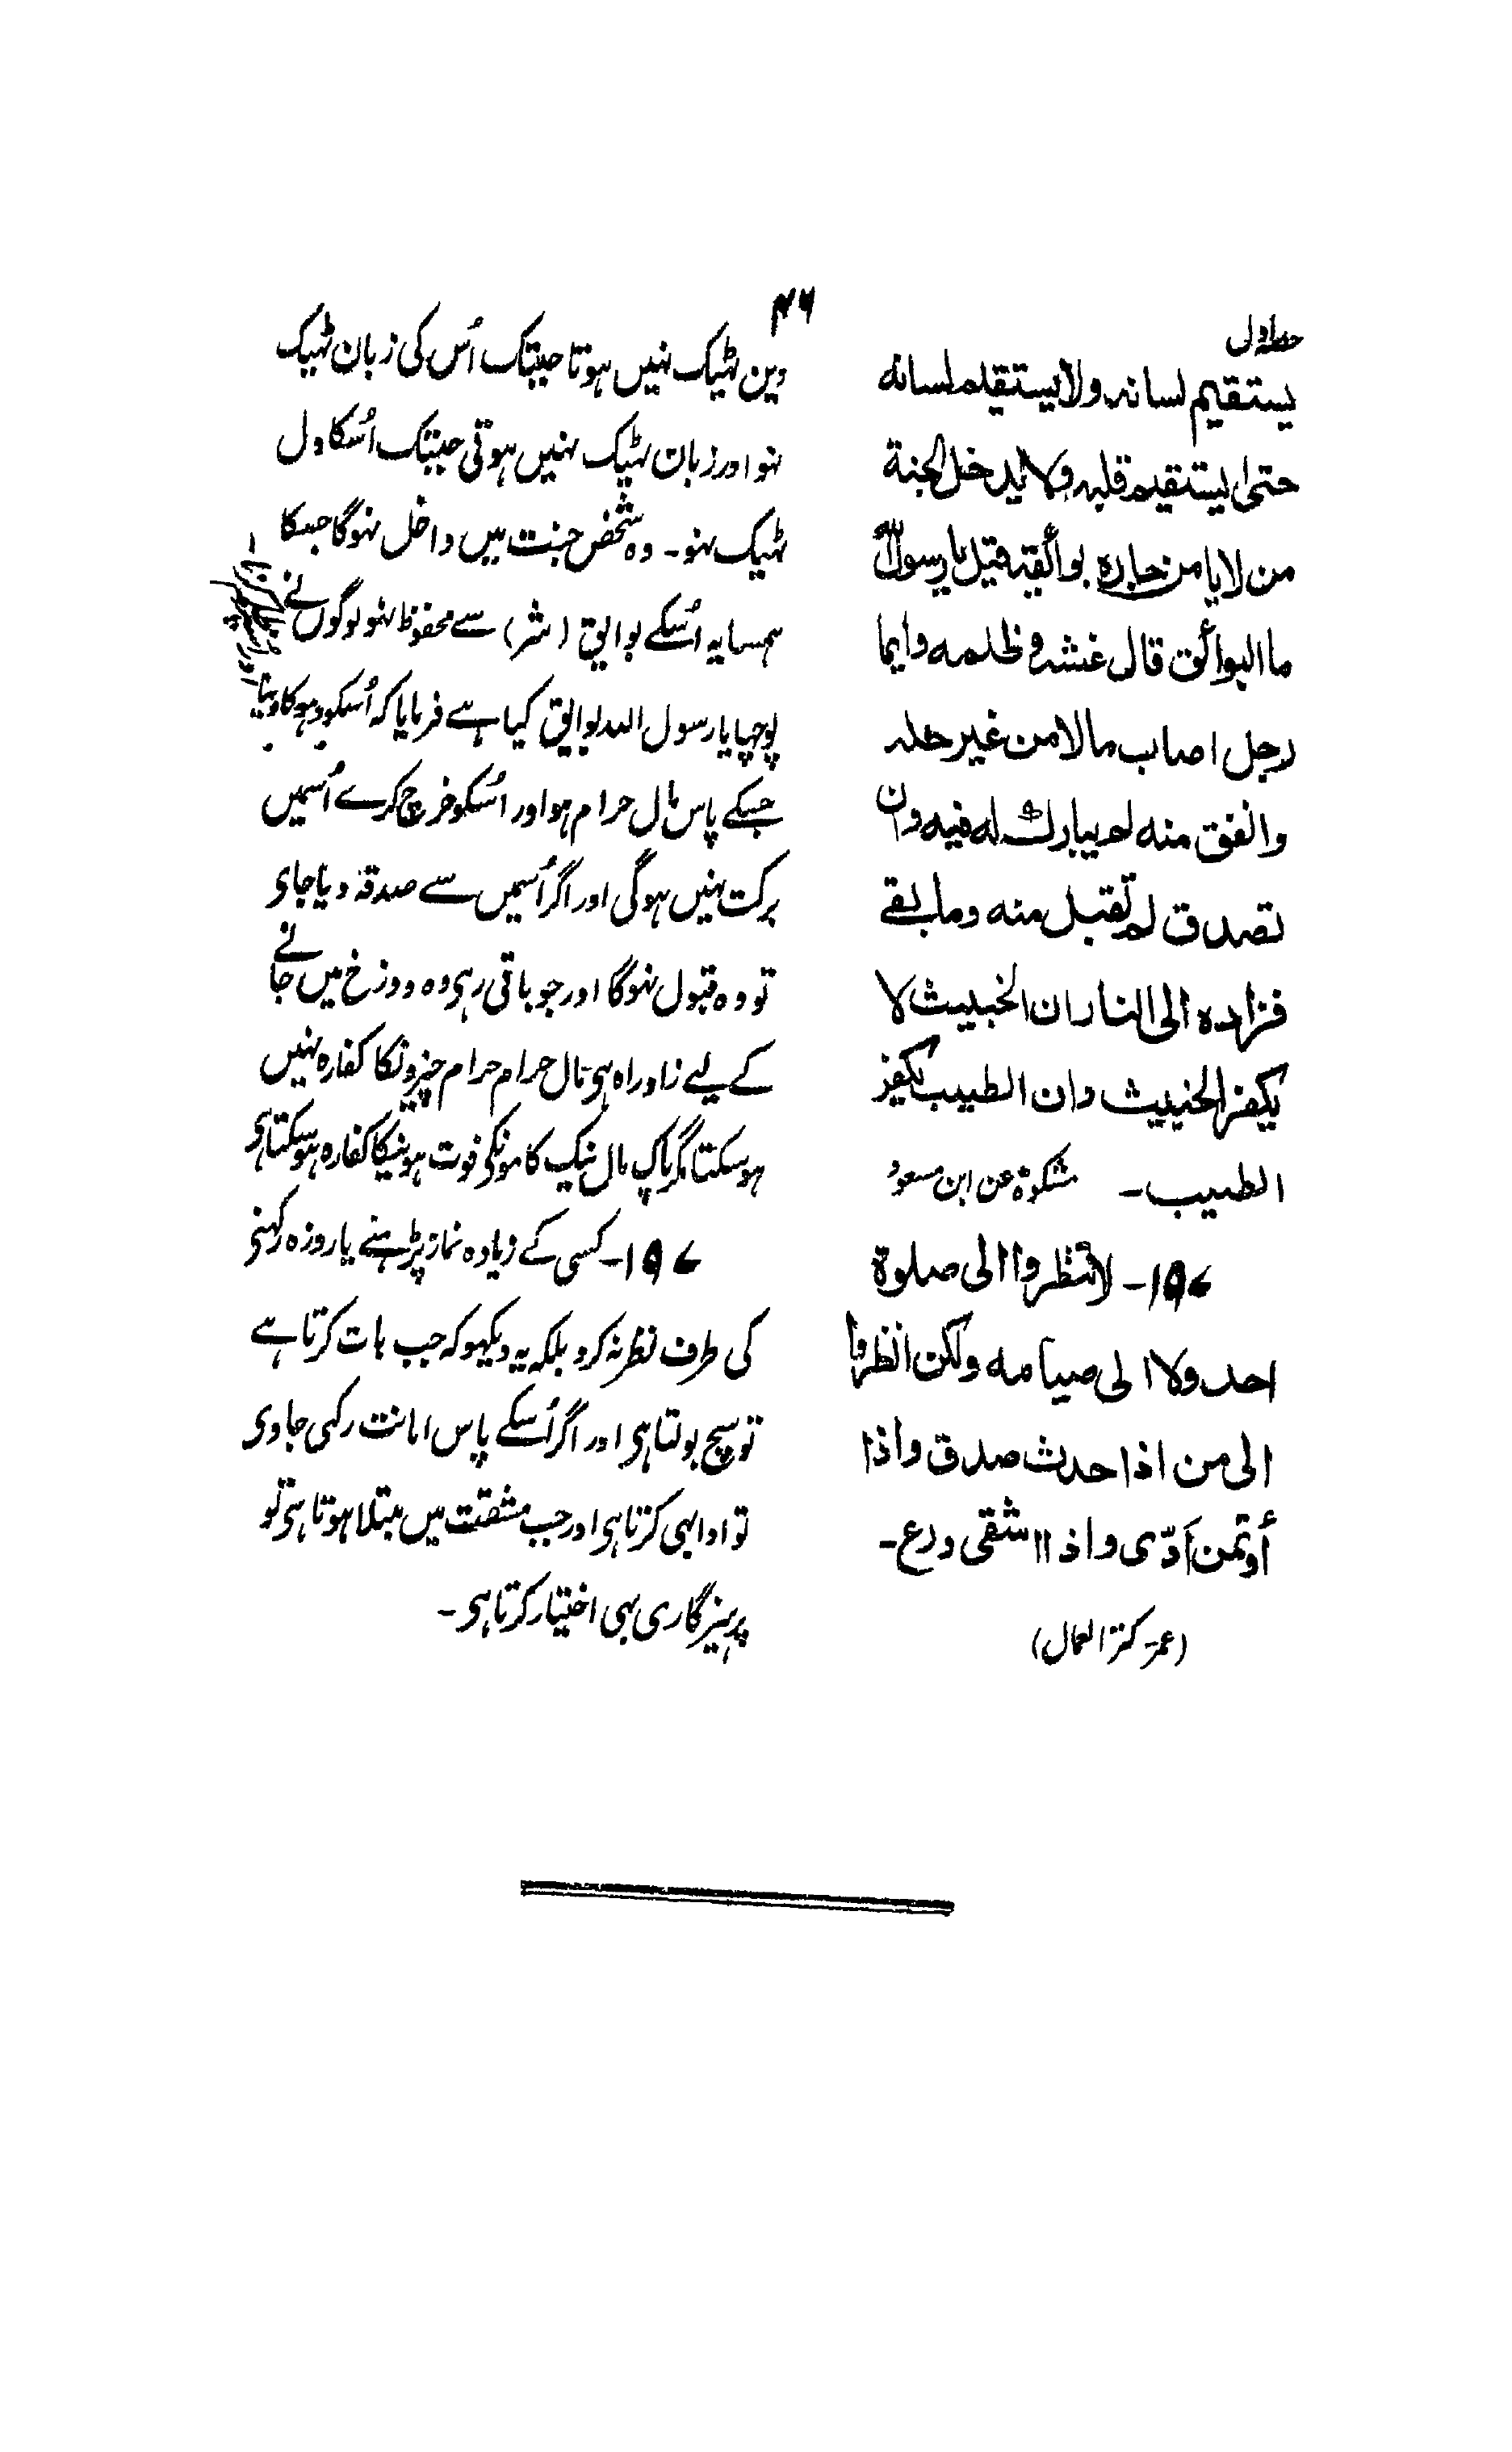 حصہ اول
۴۶
يستقيم لسانہ ولا يستقيم لسانه
حتى يستقيم قلبہ ولا يدخل الجنة
من لا يامن جاره بوائقه قيل يا رسول الله
ما البوائق قال غشہ وظلمه وايما
رجل اصاب مالا من غير حله
وانفق منه لم يبارك له فيه وان
تصدق لم تقبل منه وما بقے
فزاده الى النار ان الخبيث لا
يكفر الخبيث وان الطيب يكفر
الطيب ـ مشكوة عن ابن مسعودؓ
۱۹۷ ـ لا تنظروا الى صلوة
احد ولا الى صيامه ولكن انظروا
الى من اذا حدث صدق واذا
أوتمن أدّى واذا اشقى ورع ـ
(عمرؓ كنز العمال)
دین ٹھیک نہیں ہوتا جبتک اُس کی زبان ٹھیک
نہو اور زبان ٹھیک نہیں ہوتی جبتک اُسکا دل
ٹھیک نہو ـ وہ شخص جنت میں داخل نہوگا جسکا
ہمسایہ اُسکے بوایق (شر) سے محفوظ نہو لوگوں نے
پوچھا یا رسول اللہ بوایق کیا ہے فرمایا کہ اُسکو دھوکا دینا
جسکے پاس مال حرام ہو اور اُسکو خرچ کرے اُسمیں
برکت نہیں ہوگی اور اگر اُسمیں سے صدقہ دیا جای
تو وہ قبول نہوگا اور جو باقی رہی وہ دوزخ میں جانے
کے لیے زاد راہ ہی مال حرام حرام چیزونکا کفارہ نہیں
ہوسکتا مگر پاک مال نیک کامونکی فوت ہونیکا کفارہ ہوسکتا ہی
۱۹۷ ـ کسی کے زیادہ نماز پڑہنے یا روزہ رکہنے
کی طرف نظر نہ کرو بلکہ یہ دیکہو کہ جب بات کرتا ہے
تو سچ بولتا ہی اور اگر اُسکے پاس امانت رکہی جاوی
تو ادا بہی کرتا ہی اور جب مشقت میں مبتلا ہوتا ہی تو
پرہیزگاری بہی اختیار کرتا ہی ـ